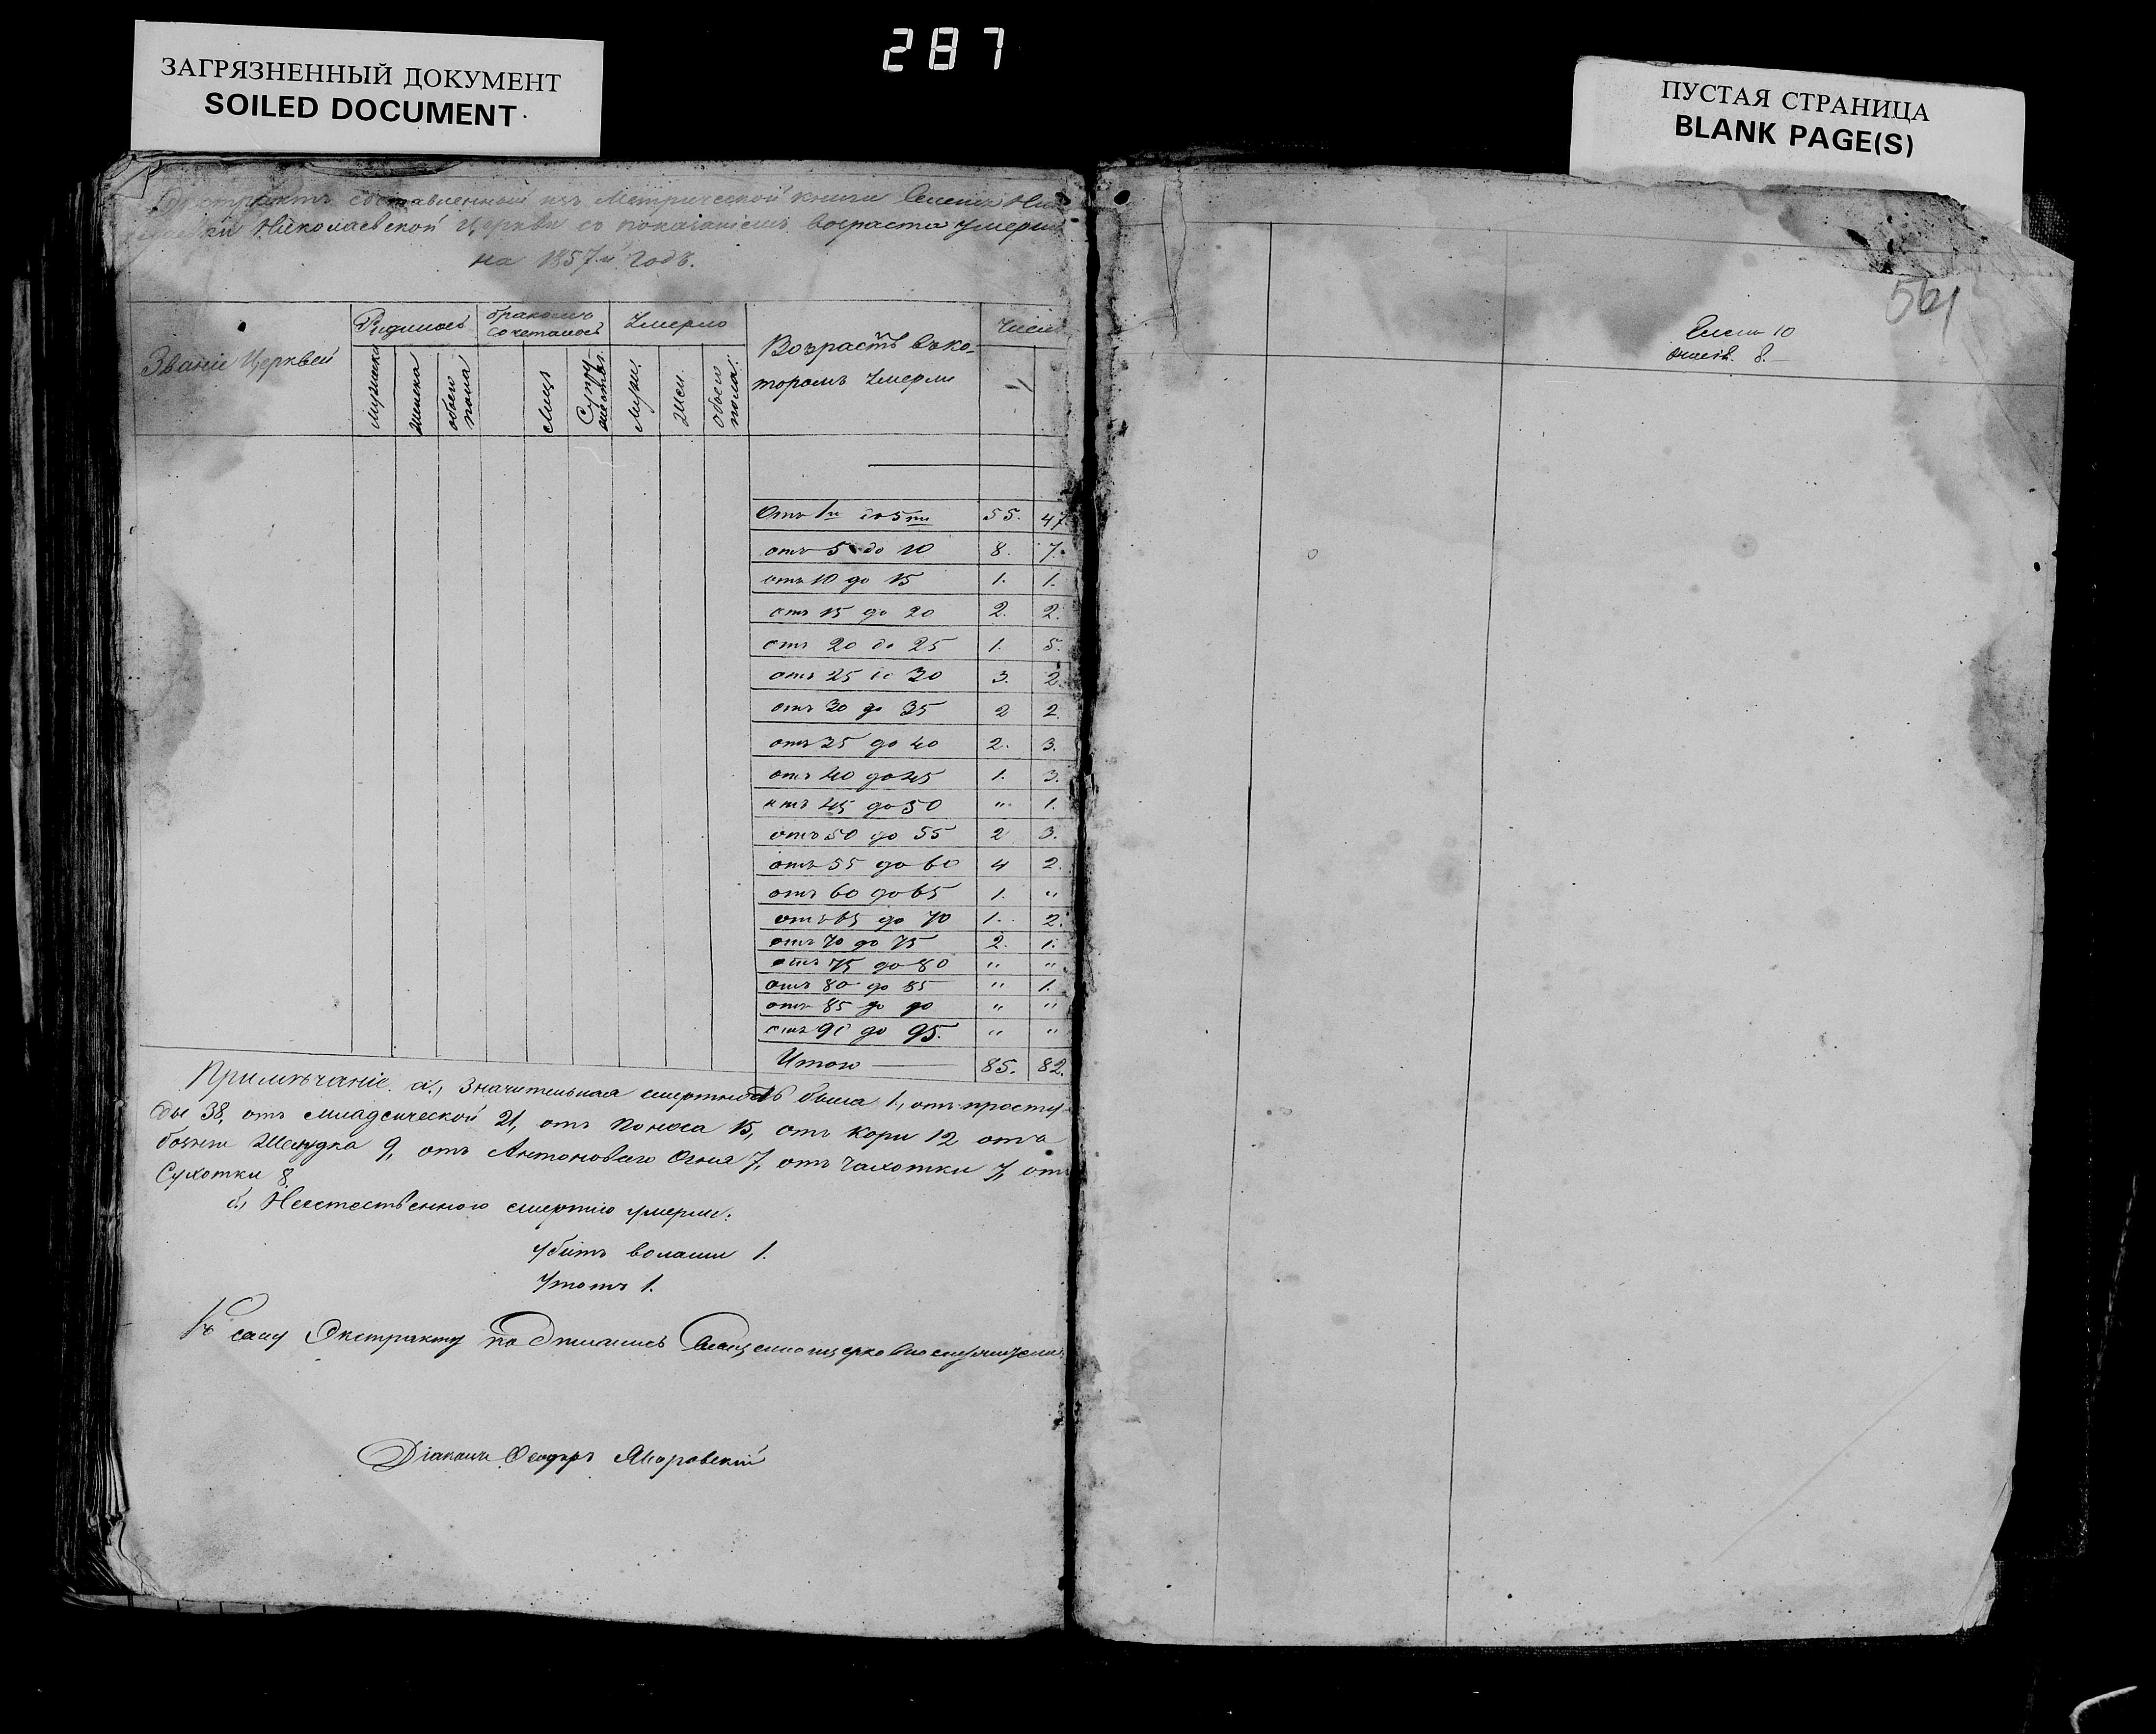 287
ЗАГРЯЗНЕННЫЙ ДОКУМЕНТ
SOILED DOCUMENT
ПУСТАЯ СТРАНИЦА
BLANK PAGE(S)
Экстрактъ составленный изъ Метрической книги
Николаевской Церкви съ показаніемъ возраста умерш
на 1857й Годъ.
Званіе Церквей
Родилось
бракомъ сочеталось
Умерло
Возрастъ въ ко-
торомъ Умерли
Число
мужеска
женска
обоего пола
лицъ
Супру-
жествъ
Муж.
Жен.
обоего пола.
Отъ 1го до 5ти 55. 47
отъ 5 до 10 8. 7.
отъ 10 до 15 1. 1.
отъ 15 до 20 2. 2.
отъ 20 до 25 1. 5.
отъ 25 до 30 3. 2.
отъ 30 до 35 2 2.
отъ 35 до 40 2. 3.
отъ 40 до 45 1. 3.
отъ 45 до 50 " 1.
отъ 50 до 55 2 3.
отъ 55 до 60 4 2.
отъ 60 до 65 1. "
отъ 65 до 70 1. 2.
отъ 70 до 75 2. 1.
отъ 75 до 80 " "
отъ 80 до 85 " 1.
отъ 85 до 90 " "
отъ 90 до 95. " "
Итого 85. 82.
Примѣчаніе. а., Значительная смертность была 1., отъ просту-
ды 38, отъ младенческой 21, отъ Поноса 15, отъ Кори 12 отъ
болѣзни Желудка 9, отъ Антоноваго Огня 7, отъ Чахотки 7, отъ
Сухотки 8.
б., Неестественною смертію умерли:
убитъ волами 1.
Утопъ 1.
Къ сему Экстракту подписались Священноцерковнослужители
Діаконъ Феодоръ Яворовскій
561
10
8.